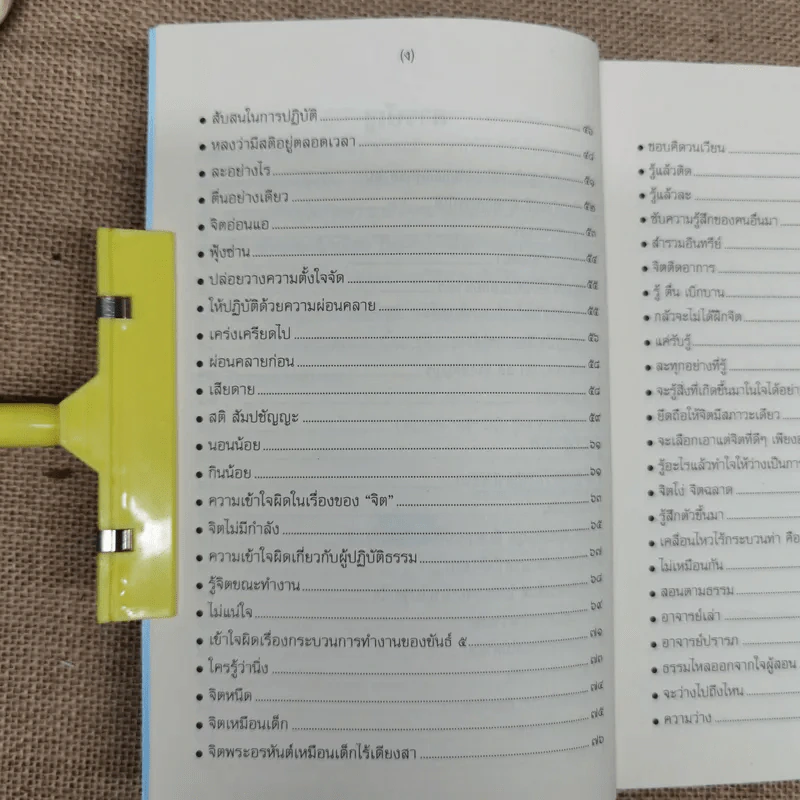 (ง)
• สับสนในการปฏิบัติ ๔๖
• หลงว่ามีสติอยู่ตลอดเวลา ๔๘
• ละอย่างไร ๕๑
• ตื่นอย่างเดียว ๕๒
• จิตอ่อนแอ ๕๓
• ฟุ้งซ่าน ๕๔
• ปล่อยวางความตั้งใจจัด ๕๕
• ให้ปฏิบัติด้วยความผ่อนคลาย ๕๕
• เคร่งเครียดไป ๕๖
• ผ่อนคลายก่อน ๕๘
• เสียดาย ๕๘
• สติ สัมปชัญญะ ๕๙
• นอนน้อย ๖๑
• กินน้อย ๖๑
• ความเข้าใจผิดในเรื่องของ “จิต” ๖๓
• จิตไม่มีกำลัง ๖๕
• ความเข้าใจผิดเกี่ยวกับผู้ปฏิบัติธรรม ๖๗
• รู้จิตขณะทำงาน ๖๘
• ไม่แน่ใจ ๖๙
• เข้าใจผิดเรื่องกระบวนการทำงานของขันธ์ ๕ ๗๑
• ใครรู้ว่านิ่ง ๗๓
• จิตหนืด ๗๔
• จิตเหมือนเด็ก ๗๕
• จิตพระอรหันต์เหมือนเด็กไร้เดียงสา ๗๖
• ชอบคิดวนเวียน
• รู้แล้วติด
• รู้แล้วละ
• ซับความรู้สึกของคนอื่นมา
• สำรวมอินทรีย์
• จิตติดอาการ
• รู้ ตื่น เบิกบาน
• กลัวจะไม่ได้ฝึกจิต
• แค่รับรู้
• ละทุกอย่างที่รู้
• จะรู้สิ่งที่เกิดขึ้นมาในใจได้อย่า
• ยึดถือให้จิตมีสภาวะเดียว
• จะเลือกเอาแต่จิตที่ดีๆ เพียง
• รู้อะไรแล้วทำใจให้ว่างเป็นกา
• จิตโง่ จิตฉลาด
• รู้สึกตัวขึ้นมา
• เคลื่อนไหวไร้กระบวนท่า คือ
• ไม่เหมือนกัน
• สอนตามธรรม
• อาจารย์เล่า
• อาจารย์ปรารภ
• ธรรมไหลออกจากใจผู้สอน
• จะว่างไปถึงไหน
• ความว่าง